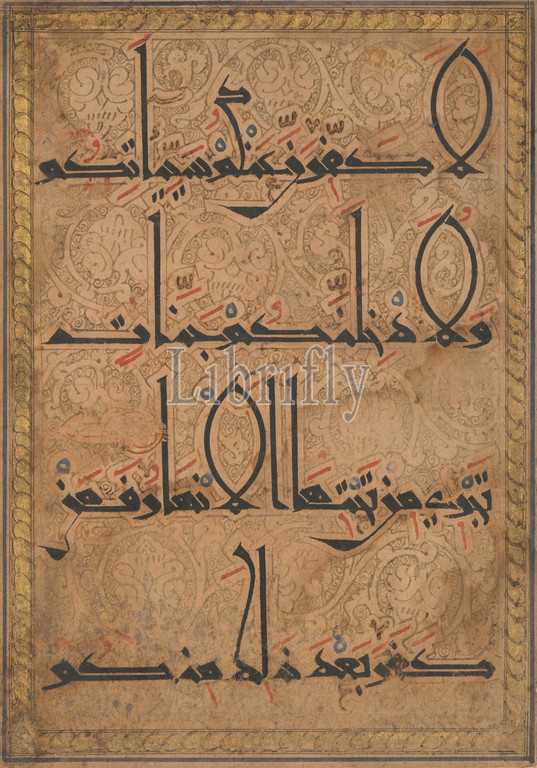 لَأُكَفِّرَنَّ عَنْكُمْ سَيِّئَاتِكُمْ
وَلَأُدْخِلَنَّكُمْ جَنَّاتٍ
تَجْرِي مِنْ تَحْتِهَا الْأَنْهَارُ فَمَنْ
كَفَرَ بَعْدَ ذَلِكَ مِنْكُمْ
Librifly